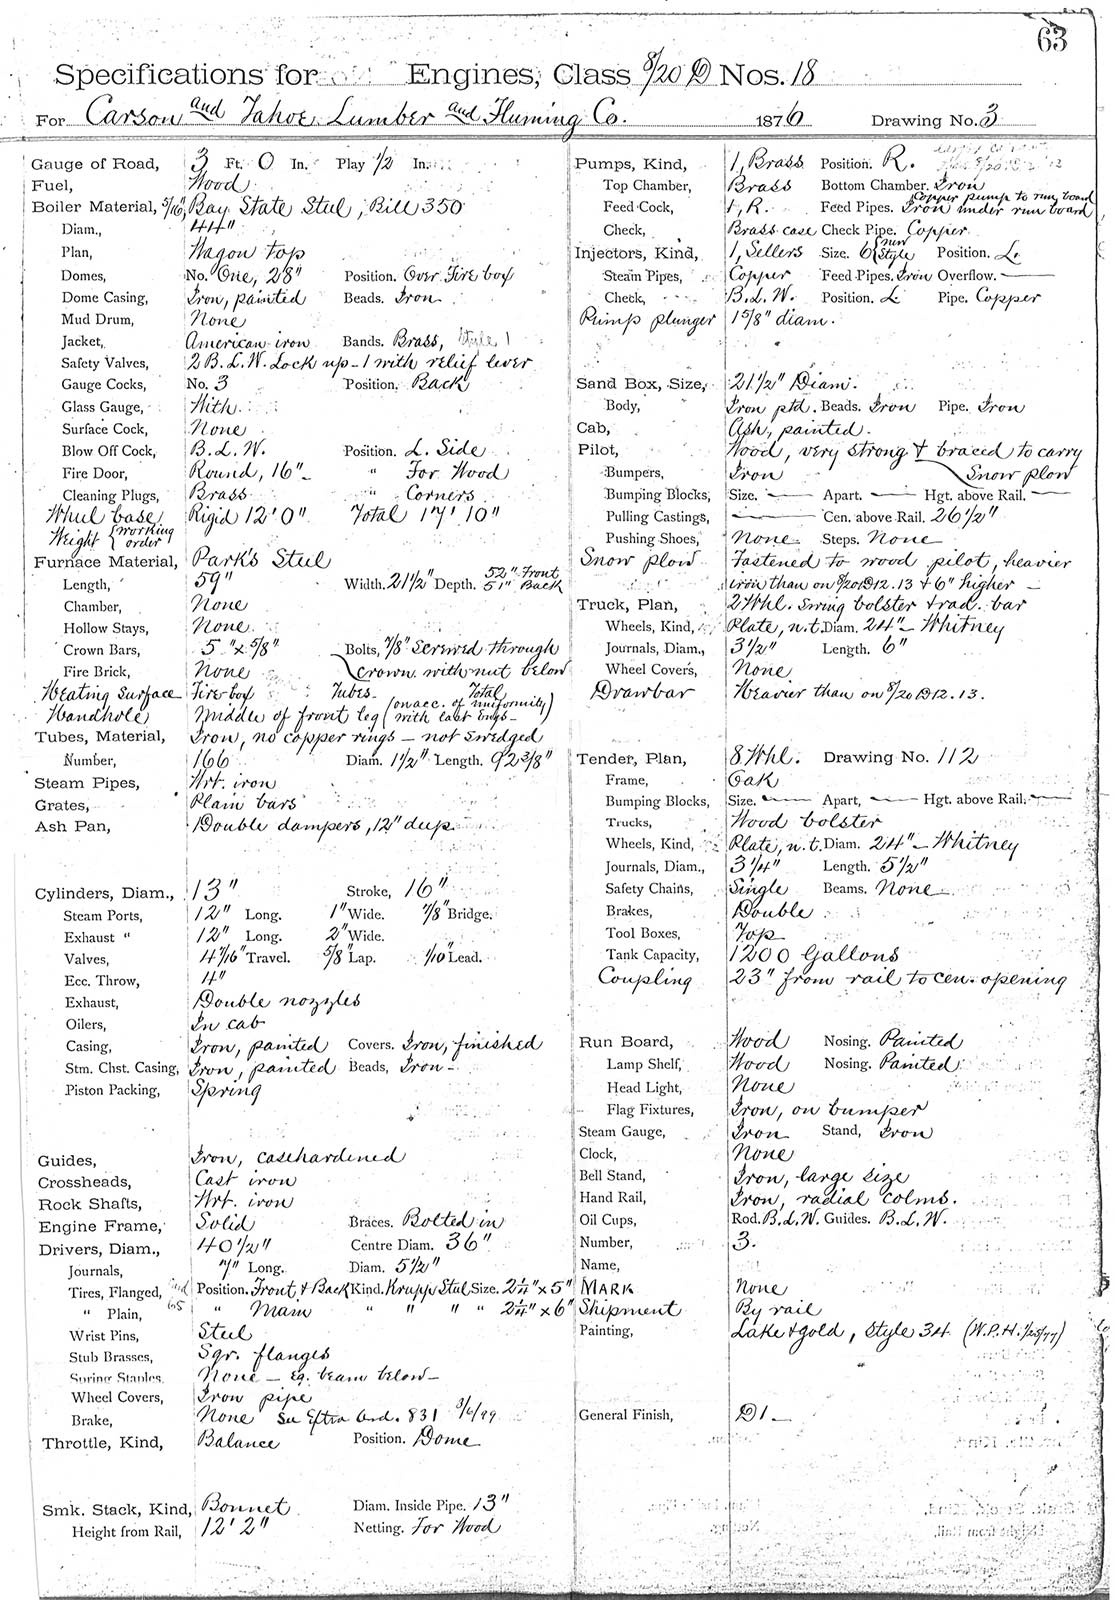 63
Specifications for Engines, Class 8/20 D Nos. 18
For Carson and Tahoe Lumber and Fluming Co. 1876 Drawing No. 3
Gauge of Road, 3 Ft. 0 In. Play 1/2 In.
Fuel, Wood
Boiler Material, 5/16", Bay State Steel, Bill 350
Diam., 44"
Plan, Wagon top
Domes, No. One, 28" Position. Over Fire box
Dome Casing, Iron, painted Beads. Iron
Mud Drum, None
Jacket, American iron Bands. Brass, Style 1
Safety Valves, 2 B.L.W. Lock up - 1 with relief lever
Gauge Cocks, No. 3 Position. Back
Glass Gauge, With
Surface Cock, None
Blow Off Cock, B.L.W. Position. L. Side
Fire Door, Round, 16" " For Wood
Cleaning Plugs, Brass " Corners
Wheel base Rigid 12' 0" Total 17' 10"
Weight { working order
Furnace Material, Park's Steel
Length, 59" Width. 21 1/2" Depth. 52" Front 51" Back
Chamber, None
Hollow Stays, None
Crown Bars, 5" x 5/8" Bolts, 7/8" Screwed through
Fire Brick, None crown with nut below
Heating Surface Fire box Tubes Total
Handhole Middle of front leg (on acc. of uniformity with last Engs -)
Tubes, Material, Iron, no copper rings - not swedged
Number, 166 Diam. 1 1/2" Length. 92 3/8"
Steam Pipes, Wrt. iron
Grates, Plain bars
Ash Pan, Double dampers, 12" deep
Cylinders, Diam., 13" Stroke, 16"
Steam Ports, 12" Long. 1" Wide. 7/8" Bridge.
Exhaust " 12" Long. 2" Wide.
Valves, 4 7/16" Travel. 5/8" Lap. 1/10" Lead.
Ecc. Throw, 4"
Exhaust, Double nozzles
Oilers, In cab
Casing, Iron, painted Covers. Iron, finished
Stm. Chst. Casing, Iron, painted Beads, Iron -
Piston Packing, Spring
Guides, Iron, casehardened
Crossheads, Cast iron
Rock Shafts, Wrt. iron
Engine Frame, Solid Braces. Bolted in
Drivers, Diam., 40 1/2" Centre Diam. 36"
Journals, 7" Long. Diam. 5 1/2"
Tires, Flanged, Position. Front & Back Kind. Krupp Steel Size. 2 1/4" x 5"
" Plain, " Main " " " " 2 1/4" x 6"
Wrist Pins, Steel
Stub Brasses, Sqr. flanges
Spring Staples, None - Eq. beam below -
Wheel Covers, Iron pipe
Brake, None See Extra Ord. 831
Throttle, Kind, Balance Position. Dome
Smk. Stack, Kind, Bonnet Diam. Inside Pipe. 13"
Height from Rail, 12' 2" Netting. For Wood
Pumps, Kind, 1, Brass Position. R.
Top Chamber, Brass Bottom Chamber. Iron
Feed Cock, 1, R. Feed Pipes. Copper pump to run board Iron under run board
Check, Brass case Check Pipe. Copper
Injectors, Kind, 1, Sellers Size. 6 { new Style Position. L.
Steam Pipes, Copper Feed Pipes. Iron Overflow. —
Check, B.L.W. Position. L Pipe. Copper
Pump plunger 1 5/8" diam.
Sand Box, Size, 21 1/2" Diam.
Body, Iron ptd. Beads. Iron Pipe. Iron
Cab, Ash, painted.
Pilot, Wood, very strong & braced to carry
Bumpers, Iron Snow plow
Bumping Blocks, Size. — Apart. — Hgt. above Rail. —
Pulling Castings, — Cen. above Rail. 26 1/2"
Pushing Shoes, None Steps. None
Snow plow Fastened to wood pilot, heavier
iron than on 8/20 D 12.13 & 6" higher -
Truck, Plan, 2 Whl. Swing bolster & rad. bar
Wheels, Kind, Plate, n.t. Diam. 24" - Whitney
Journals, Diam., 3 1/2" Length. 6"
Wheel Covers, None
Drawbar Heavier than on 8/20 D 12.13.
Tender, Plan, 8 Whl. Drawing No. 112
Frame, Oak
Bumping Blocks, Size. — Apart, — Hgt. above Rail. —
Trucks, Wood bolster
Wheels, Kind, Plate, n.t. Diam. 24" - Whitney
Journals, Diam., 3 1/4" Length. 5 1/2"
Safety Chains, Single Beams. None
Brakes, Double
Tool Boxes, Top
Tank Capacity, 1200 Gallons
Coupling 23" from rail to cen. opening
Run Board, Wood Nosing. Painted
Lamp Shelf, Wood Nosing. Painted
Head Light, None
Flag Fixtures, Iron, on bumper
Steam Gauge, Iron Stand, Iron
Clock, None
Bell Stand, Iron, large size
Hand Rail, Iron, radial colms.
Oil Cups, Rod. B.L.W. Guides. B.L.W.
Number, 3.
Name,
MARK None
Shipment By rail
Painting, Lake & gold, Style 34 (W.P.H. 1/25/77)
General Finish, D 1 -